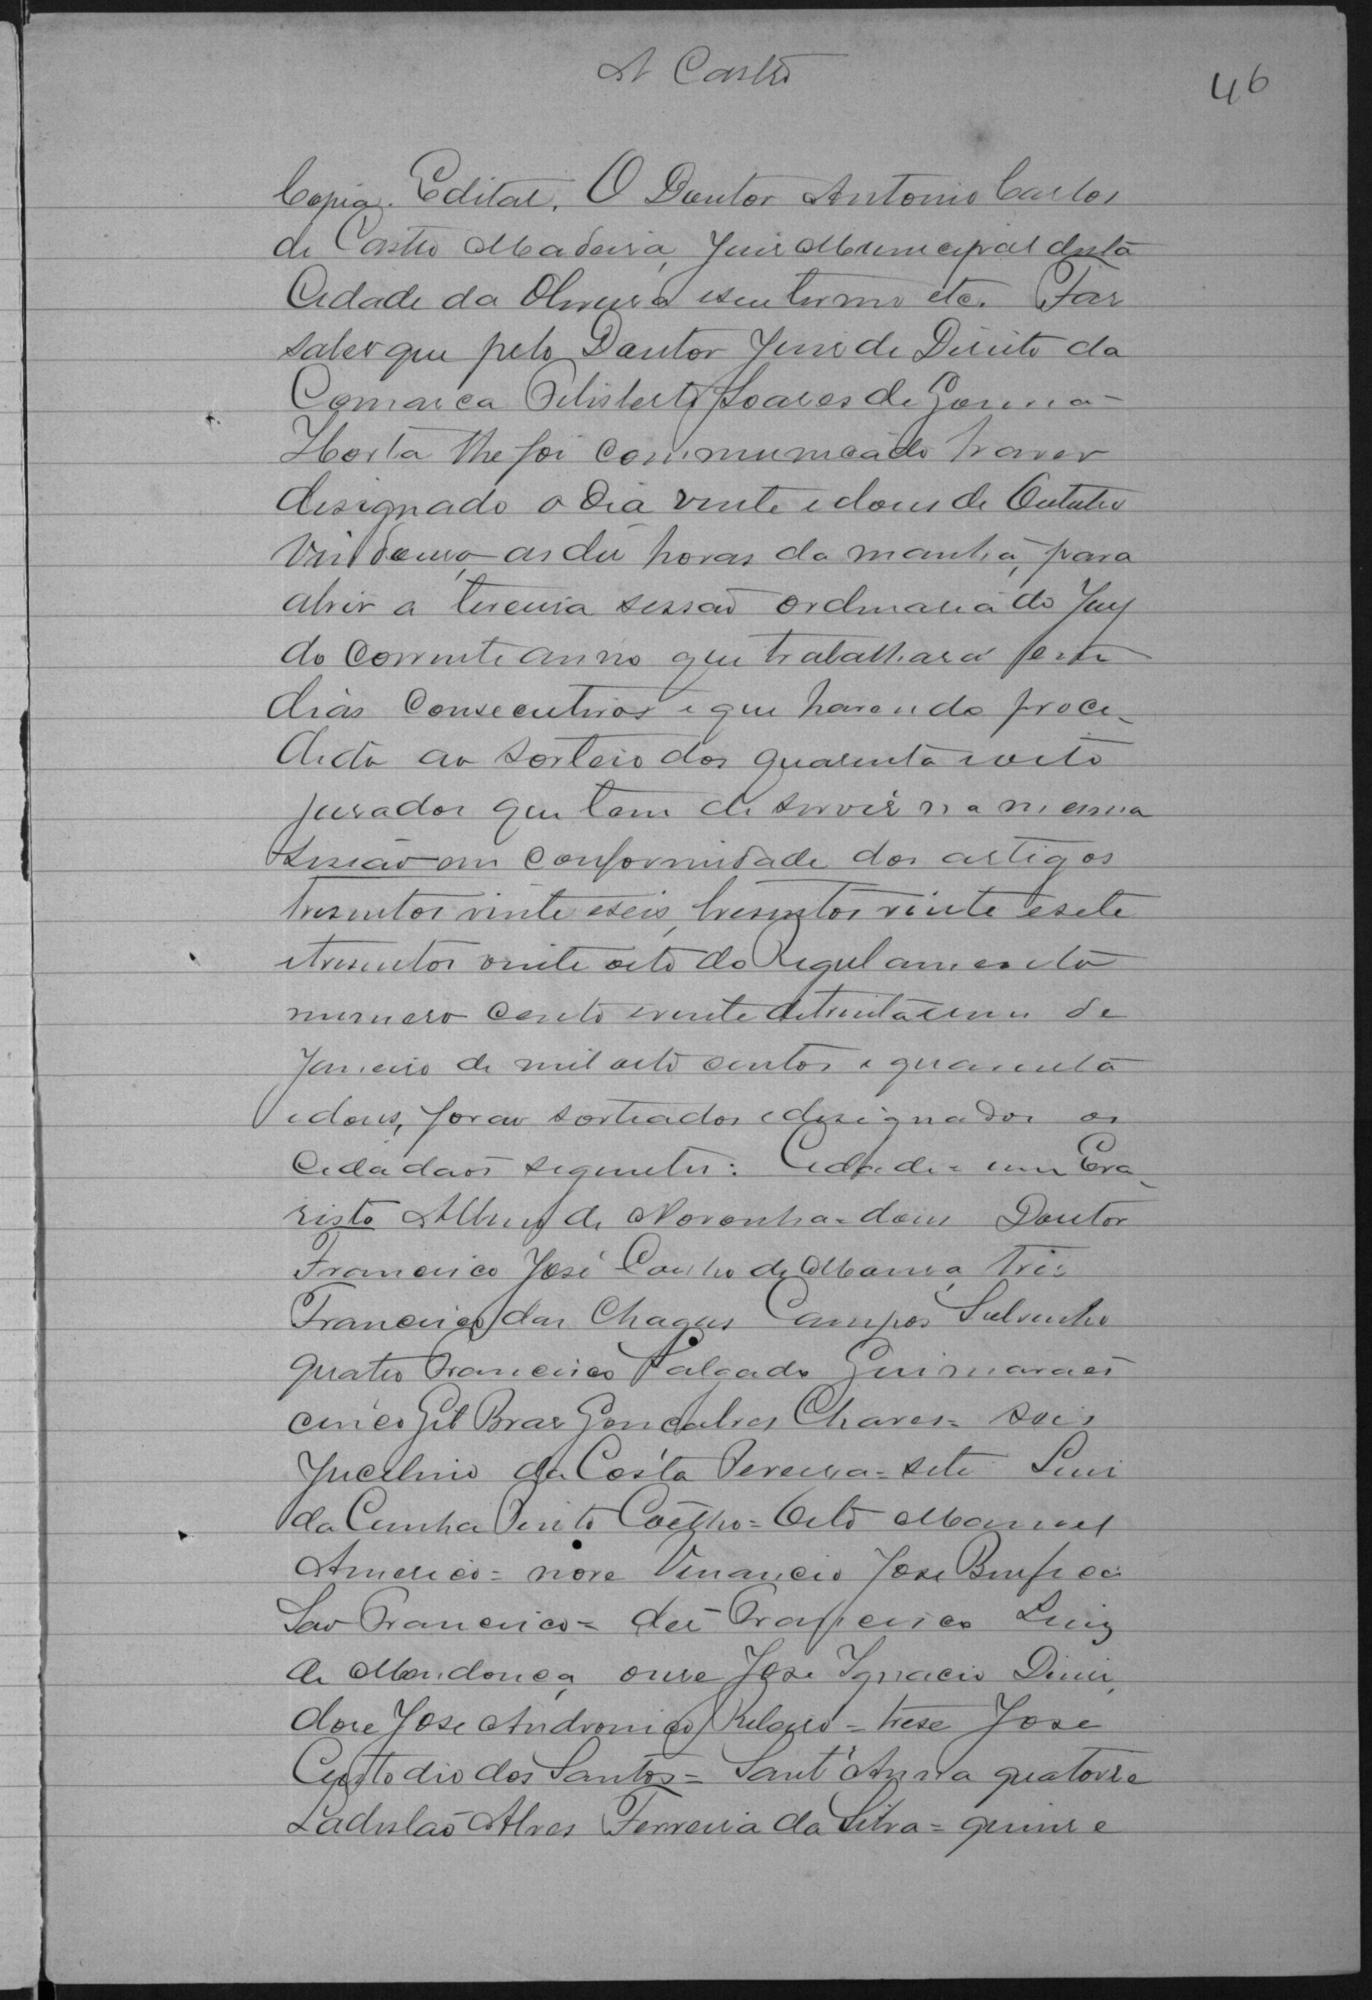 A Castro
46
Copia. Edital. O Doutor Antonio Carlos
de Castro Madeira, Juis Municipal desta
Cidade da Oliveira eseu termo etc. Fas
saber que pelo Doutor Juis de Direito da
Comarca Felisberto Soares de Gouvea
Horta lhe foi communicado haver
designado o dia vinte e dous de Outubro
vindouro, as des horas da manhã, para
abrir a terceira sessão ordinaria do Jury
do corrente anno que trabalhará em
dias consecutivos e que havendo proce-
dido ao sorteio dos quarenta e oito
jurados que tem de servir na mesma
sessão em conformidade dos artigos
tresentos vinte e seis, tresentos vinte e sete
e tresentos vinte oito do Regulamento
numero cento e vinte de trinta e um de
Janeiro de mil oito centos e quarenta
e dous, forão sorteados e designados os
Cidadãos seguintes: Cidade = um Eva-
risto Alves de Noronha = dous Doutor
Francisco José Coelho de Moura, tres
Francisco das Chagas Campos Sobrinho
quatro Francisco Salgado Guimarães
cinco Gil Bras Gonçalves Chaves = seis
Jucelino da Costa Pereira = sete Luis
da Cunha Pinto Coelho = Oito Manoel
Americo = nove Venancio José
São Francisco = des Francisco Luiz
de Mendonça, onse José Ignacio Dinis,
dose José Andronico Ribeiro = trese José
Custodio dos Santos = Sant'Anna quatorse
Ladislao Alves Ferreira da Silva = quinse